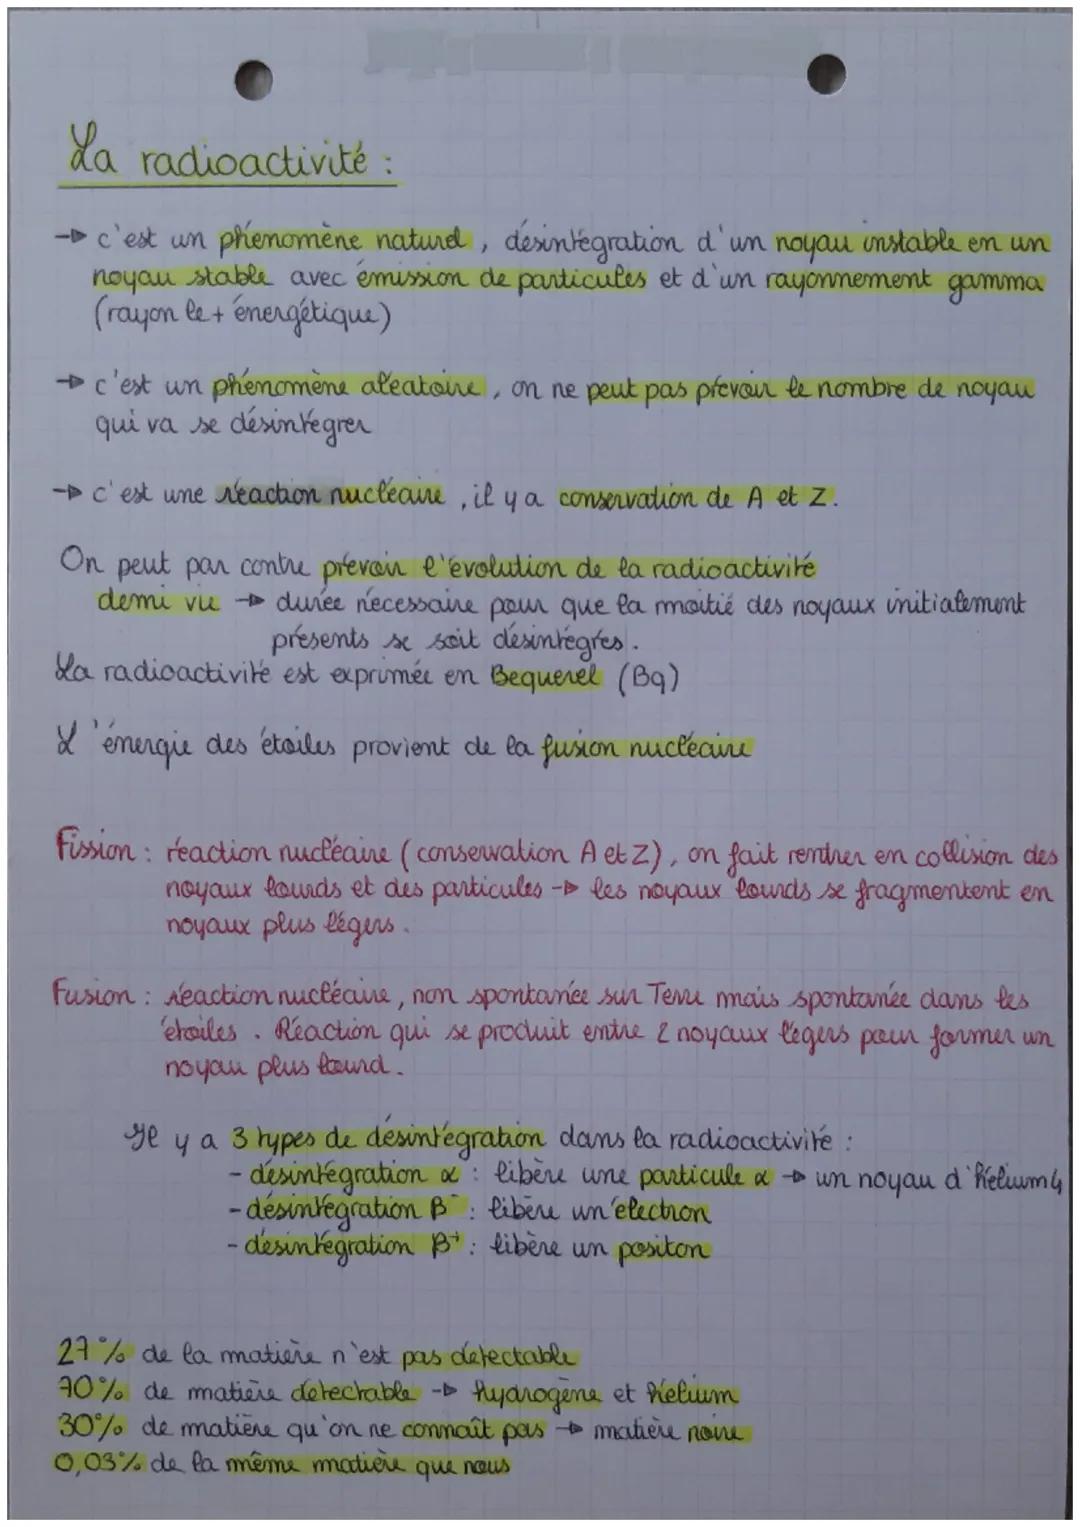 La radioactivité :
→ c'est un phénomène naturel, désintégration d'un noyau instable en un
noyau stable avec émission de particules et d'un rayonnement gamma
(rayon le + énergétique)
→ c'est un phénomène aléatoire, on ne peut pas prévoir le nombre de noyau
qui va se désintégrer
→ c'est une réaction nucléaire, il y a conservation de A et Z.
On peut par contre prévoir l'évolution de la radioactivité
demi vie → durée nécessaire pour que la moitié des noyaux initialement
présents se soit désintégrés.
La radioactivité est exprimée en Bequerel (Bq)
L'énergie des étoiles provient de la fusion nucléaire
Fission : réaction nucléaire (conservation A et Z), on fait rentrer en collision des
noyaux lourds et des particules → les noyaux lourds se fragmentent en
noyaux plus légers.
Fusion : réaction nucléaire, non spontanée sur Terre mais spontanée dans les
étoiles. Réaction qui se produit entre 2 noyaux légers pour former un
noyau plus lourd.
Il y a 3 types de désintégration dans la radioactivité :
- désintégration α : libère une particule α → un noyau d'hélium 4
- désintégration β⁻ : libère un électron
- désintégration β⁺ : libère un positon
27% de la matière n'est pas détectable
70% de matière détectable → hydrogène et hélium
30% de matière qu'on ne connaît pas → matière noire
0,03% de la même matière que nous